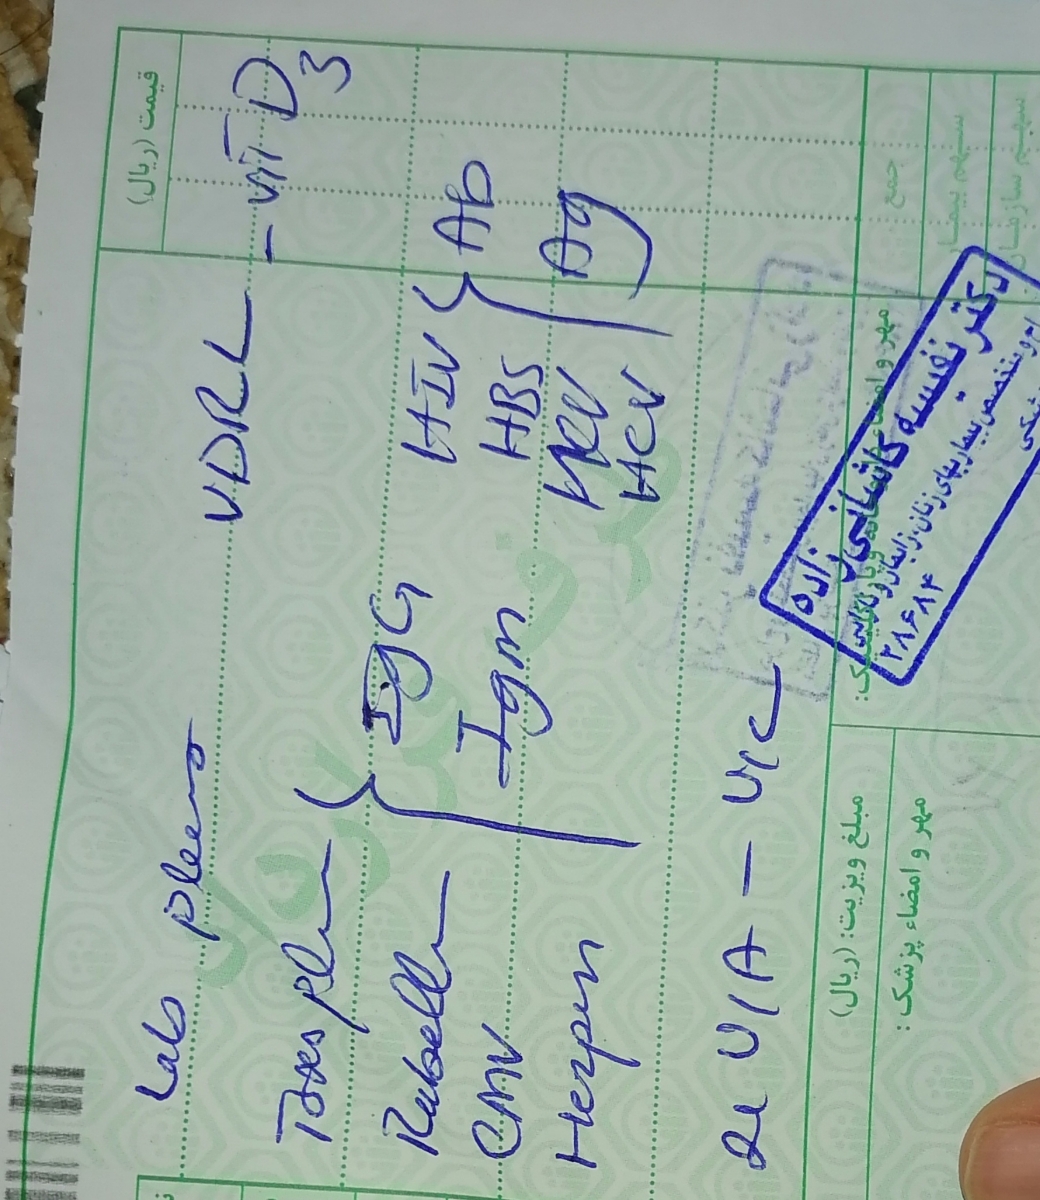 قیمت (ریال)
Lab please
VDRL - Vit D3
Toxopl
Rubella
CMV
Herpes
IgG
Igm
HIV
HBS
HCV
Ab
Ag
U/A - U/C
جمع :
سهم بیمار
سهم سازمان
مهر و امضاء
دکتر نفیسه کاشانی زاده
متخصص بیماریهای زنان، زایمان و نازایی
مبلغ ویزیت: (ریال)
مهر و امضاء پزشک :